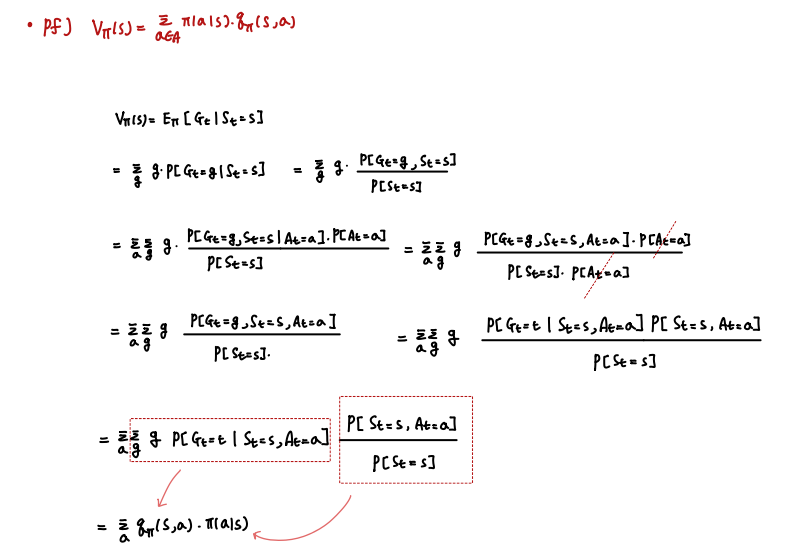 • pf) V_π(s) = Σ_{a∈A} π(a|s)·q_π(s,a)
V_π(s) = E_π[G_t | S_t=s]
= Σ_g g·P[G_t=g | S_t=s] = Σ_g g· P[G_t=g, S_t=s] / P[S_t=s]
= Σ_a Σ_g g· P[G_t=g, S_t=s | A_t=a]·P[A_t=a] / P[S_t=s] = Σ_a Σ_g g P[G_t=g, S_t=s, A_t=a]·P[A_t=a] / P[S_t=s]·P[A_t=a]
= Σ_a Σ_g g P[G_t=g, S_t=s, A_t=a] / P[S_t=s]. = Σ_a Σ_g g P[G_t=t | S_t=s, A_t=a] P[S_t=s, A_t=a] / P[S_t=s]
= Σ_a Σ_g g P[G_t=t | S_t=s, A_t=a] P[S_t=s, A_t=a] / P[S_t=s]
= Σ_a q_π(s,a)·π(a|s)